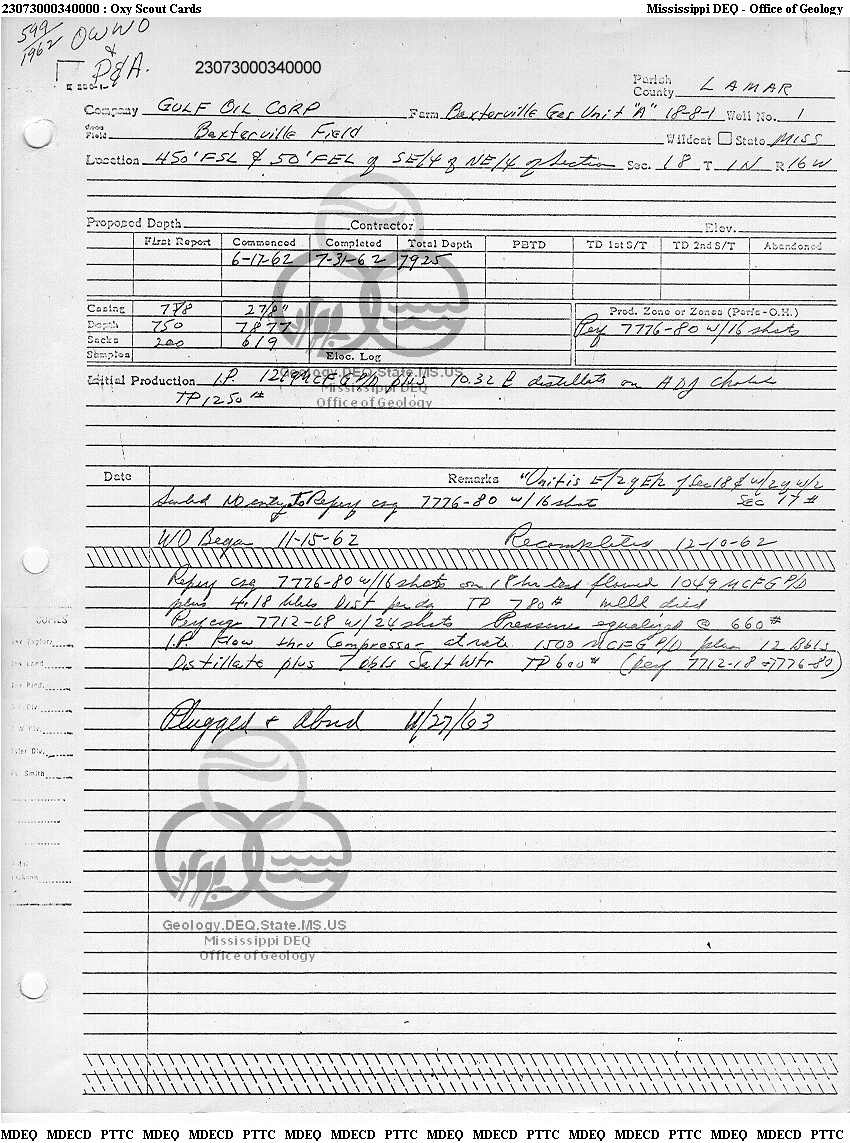 23073000340000 : Oxy Scout Cards Mississippi DEQ - Office of Geology
599/1962 OWWO
& P&A.
23073000340000
Parish
County LAMAR
Company GULF OIL CORP Farm Baxterville Gas Unit "A" 18-8-1 Well No. 1
Area
Field Baxterville Field Wildcat State MISS
Location 450' FSL & 50' FEL of SE/4 of NE/4 of Section Sec. 18 T 1N R 16W
Proposed Depth Contractor Elev.
First Report Commenced Completed Total Depth PBTD TD 1st S/T TD 2nd S/T Abandoned
6-17-62 7-31-62 7925
Casing 7 7/8 2 7/8" Prod. Zone or Zones (Perfs-O.H.)
Depth 750 7877 Perf 7776-80 w/16 shots
Sacks 200 619
Samples Elec. Log
Initial Production I.P. MCFGP/D plus 10.32 B distillate on ADJ choke
TP 1250 #
Geology.DEQ.State.MS.US
Mississippi DEQ
Office of Geology
Date Remarks "Unit is E/2 of E/2 of Sec 18 & W/2 of W/2
Reperf csg 7776-80 w/16 shots SEC 17 #
WO Began 11-15-62 Recompleted 12-10-62
Reperf csg 7776-80 w/16 shots on 18 hr test flowed 1049 MCFGP/D
plus 4.18 bbls Dist per da TP 780# well died
Perf csg 7712-18 w/24 shots Pressures equalized @ 660#
I.P. Flow thru Compressor at rate 1500 MCFGP/D plus 12 Bbls
Distillate plus 7 bbls Salt Wtr TP 600# (perf 7712-18 & 7776-80)
Plugged & Abnd /27/63
COPIES
Tyler Div.
Ft. Smith
Jackson
Geology.DEQ.State.MS.US
Mississippi DEQ
Office of Geology
MDEQ MDECD PTTC MDEQ MDECD PTTC MDEQ MDECD PTTC MDEQ MDECD PTTC MDEQ MDECD PTTC MDEQ MDECD PTTC